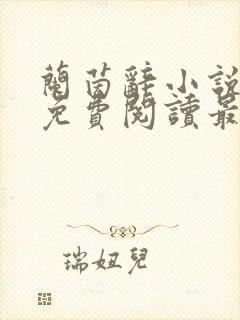 蘭茵辭小說
免費閱讀最
瑞妞兒